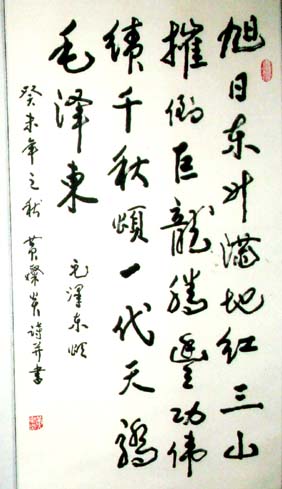 旭日东升满地红三山
摧倒巨龍腾豐功伟
绩千秋頌一代天骄
毛泽東
毛泽东颂
癸未年之秋 黄燦炎诗并書